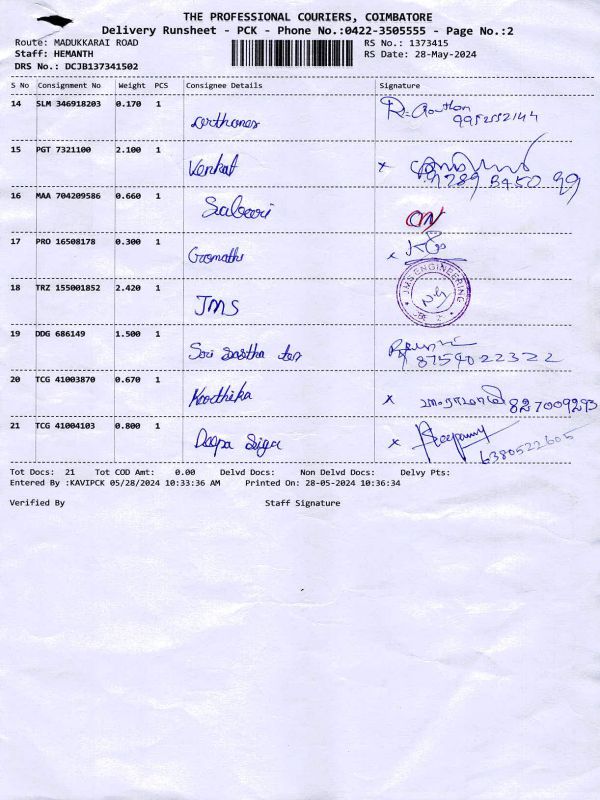 THE PROFESSIONAL COURIERS, COIMBATORE
Delivery Runsheet - PCK - Phone No.:0422-3505555 - Page No.:2
Route: MADUKKARAI ROAD
Staff: HEMANTH
DRS No.: DCJB137341502
RS No.: 1373415
RS Date: 28-May-2024
S No Consignment No Weight PCS Consignee Details Signature
14 SLM 346918203 0.170 1
15 PGT 7321100 2.100 1 Venkat x
16 MAA 704209586 0.660 1
17 PRO 16508178 0.300 1 Gomathi x
18 TRZ 155001852 2.420 1 JMS JMS ENGINEERING
19 DDG 686149 1.500 1 Sri Sastha 8754022322
20 TCG 41003870 0.670 1 Keerthika x 827009293
21 TCG 41004103 0.800 1 Deepa x 6380522605
Tot Docs: 21 Tot COD Amt: 0.00 Delvd Docs: Non Delvd Docs: Delvy Pts:
Entered By :KAVIPCK 05/28/2024 10:33:36 AM Printed On: 28-05-2024 10:36:34
Verified By Staff Signature